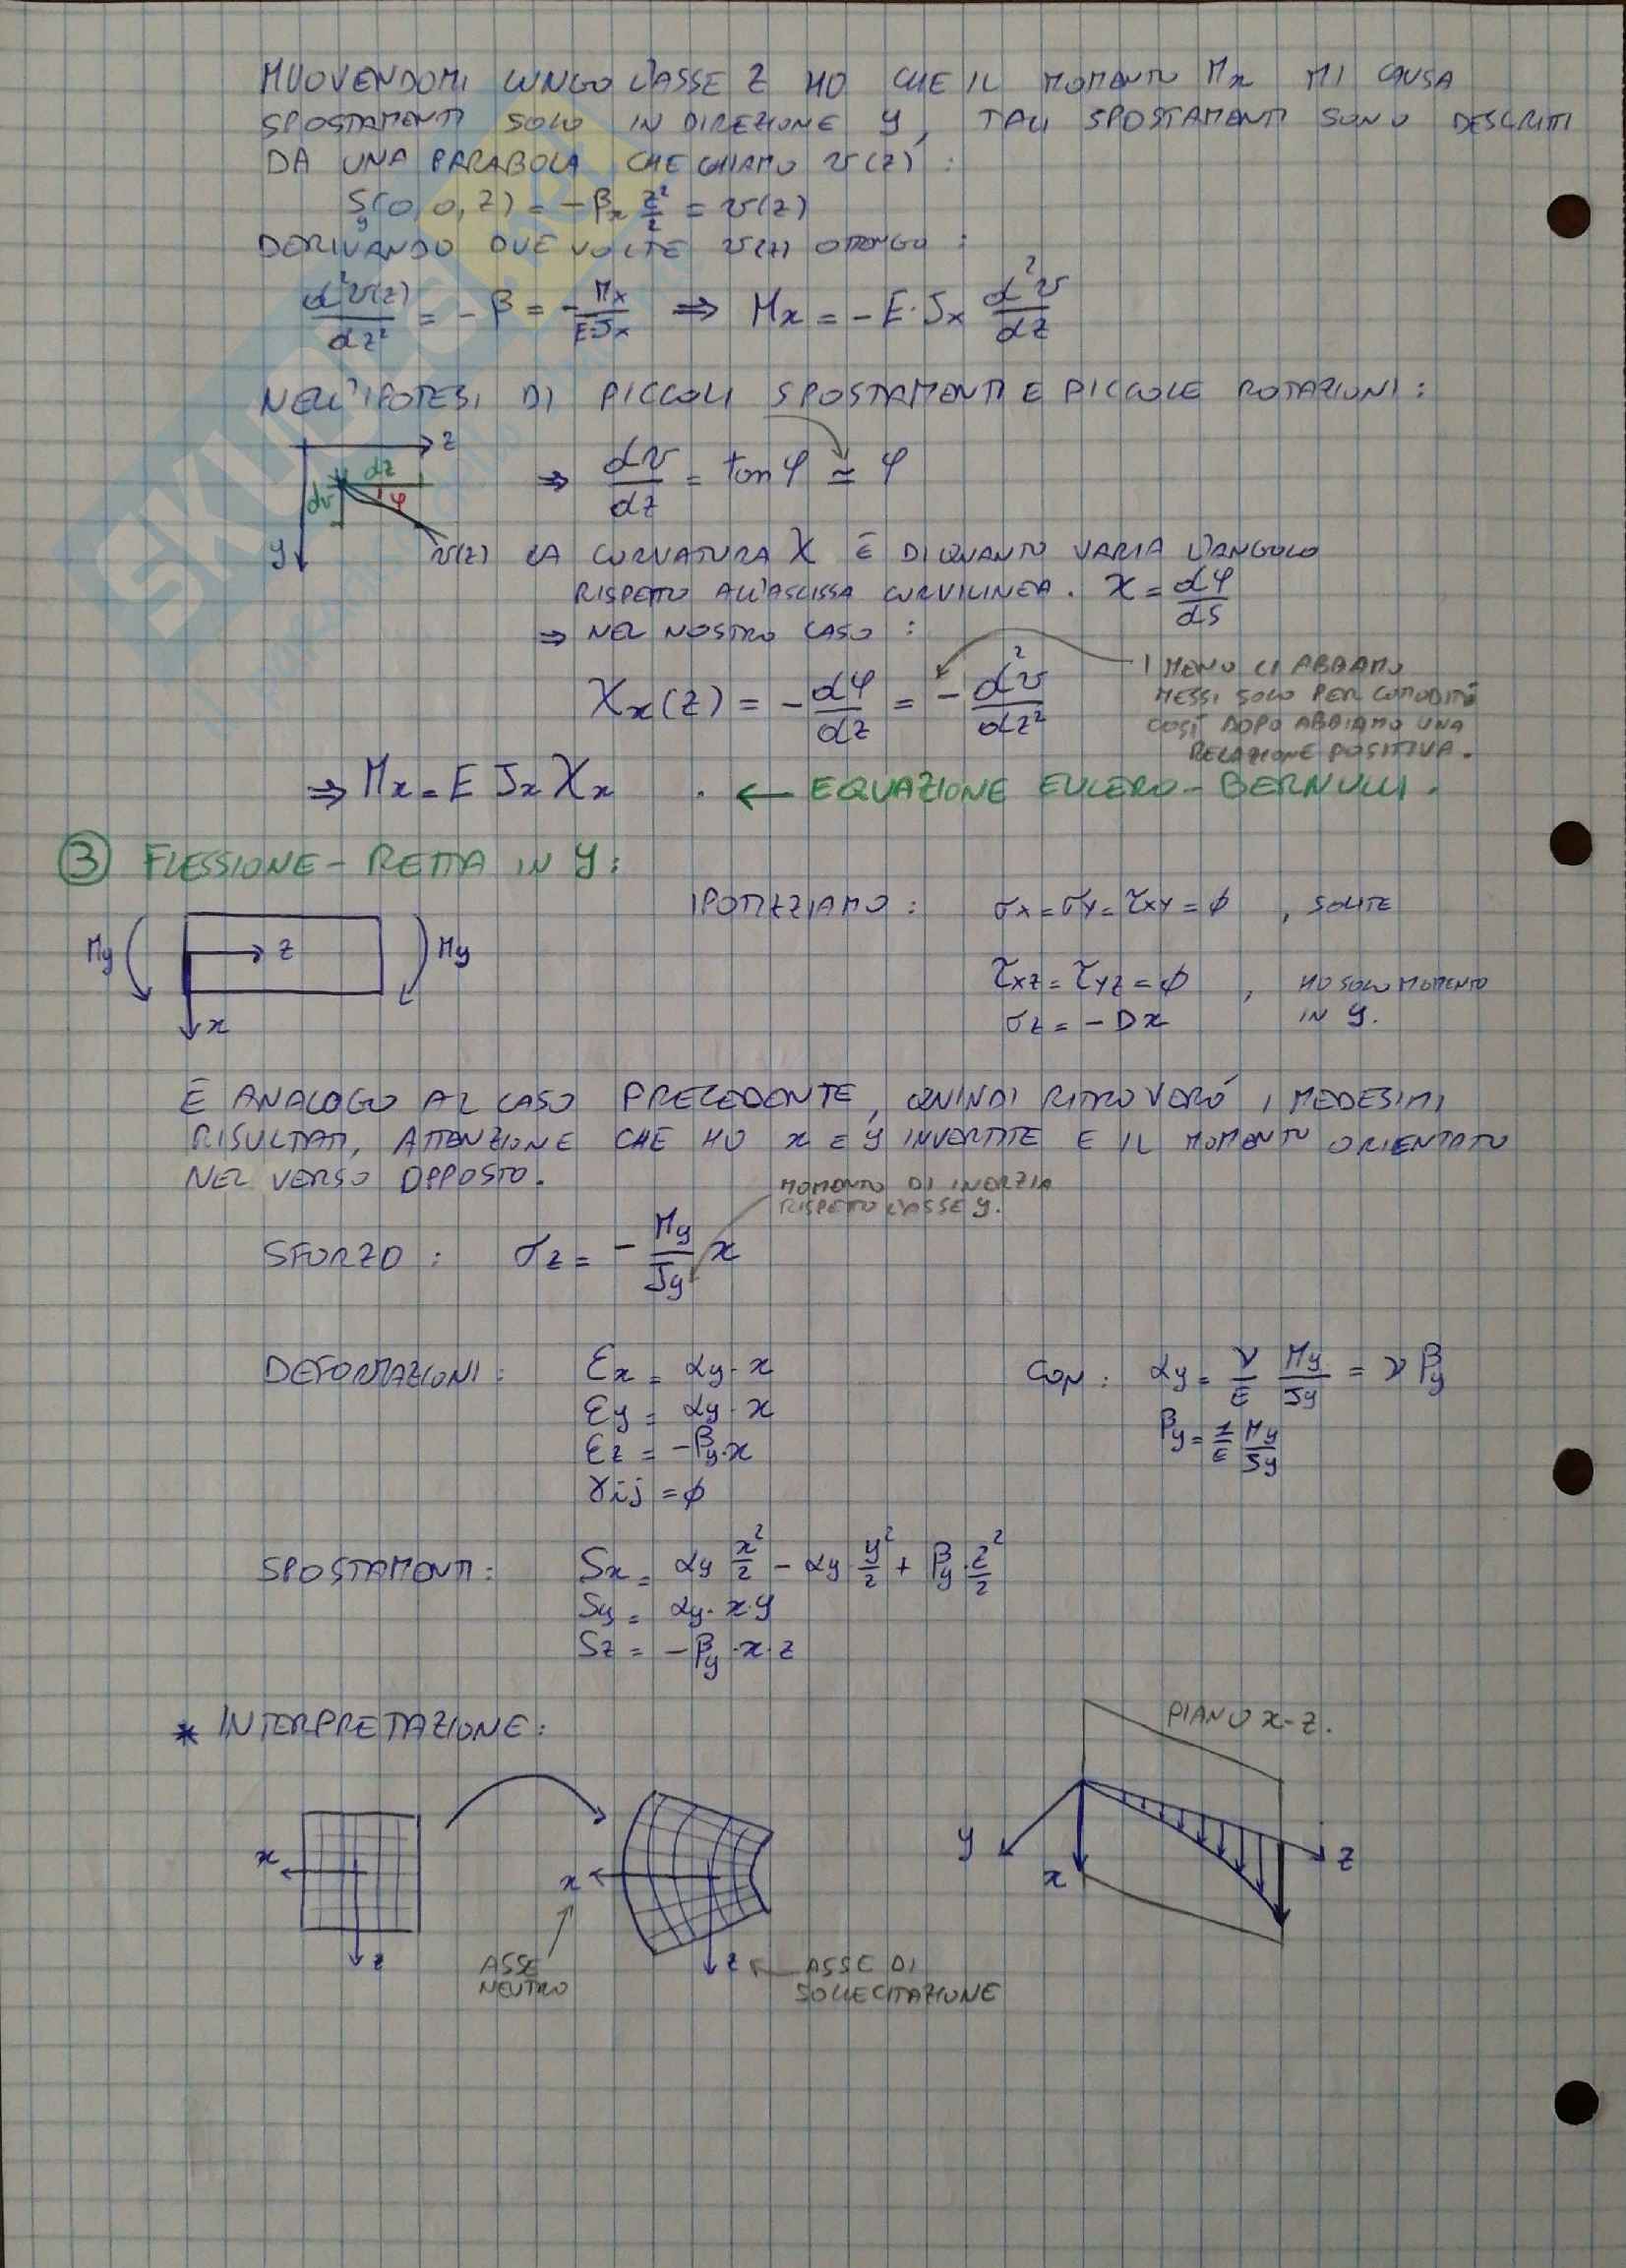 MUOVENDOMI LUNGO L'ASSE Z HO CHE IL MOMENTO Mx MI CAUSA
SPOSTAMENTI SOLO IN DIREZIONE y, TALI SPOSTAMENTI SONO DESCRITTI
DA UNA PARABOLA CHE CHIAMO v(z) :
Sy(0,0,z) = -βx z²/2 = v(z)
DERIVANDO DUE VOLTE v(z) OTTENGO :
d²v(z)/dz² = -β = -Mx/E·Jx ⇒ Mx = -E·Jx d²v/dz
NELL'IPOTESI DI PICCOLI SPOSTAMENTI E PICCOLE ROTAZIONI :
z
dz
dv
φ
y
v(z)
⇒ dv/dz = tan φ ≃ φ
LA CURVATURA χ È DI QUANTO VARIA L'ANGOLO
RISPETTO ALL'ASCISSA CURVILINEA. χ = dφ/ds
⇒ NEL NOSTRO CASO :
χx(z) = -dφ/dz = -d²v/dz²
I MENO CI ABBIAMO
MESSI SOLO PER COMODITÀ
COSÌ DOPO ABBIAMO UNA
RELAZIONE POSITIVA.
⇒ Mx = E Jx χx . ← EQUAZIONE EULERO-BERNULLI.
3 FLESSIONE-RETTA IN y :
My z My
x
IPOTIZZIAMO : σx = σy = τxy = ϕ , SOLITE
τxz = τyz = ϕ , HO SOLO MOMENTO
σz = -Dx IN y.
È ANALOGO AL CASO PRECEDENTE, QUINDI RITROVERÓ I MEDESIMI
RISULTATI, ATTENZIONE CHE HO x E y INVERTITE E IL MOMENTO ORIENTATO
NEL VERSO OPPOSTO.
MOMENTO DI INERZIA
RISPETTO L'ASSE y.
SFORZO : σz = -My/Jy x
DEFORMAZIONI : εx = αy·x
εy = αy·x
εz = -βy·x
γij = ϕ
CON : αy = ν/E My/Jy = ν βy
βy = 1/E My/Jy
SPOSTAMENTI : Sx = αy x²/2 - αy·y²/2 + βy·z²/2
Sy = αy·x·y
Sz = -βy·x·z
* INTERPRETAZIONE :
PIANO x-z.
x
z
x
z
ASSE
NEUTRO
ASSE DI
SOLLECITAZIONE
y
x
z
SKUOLA